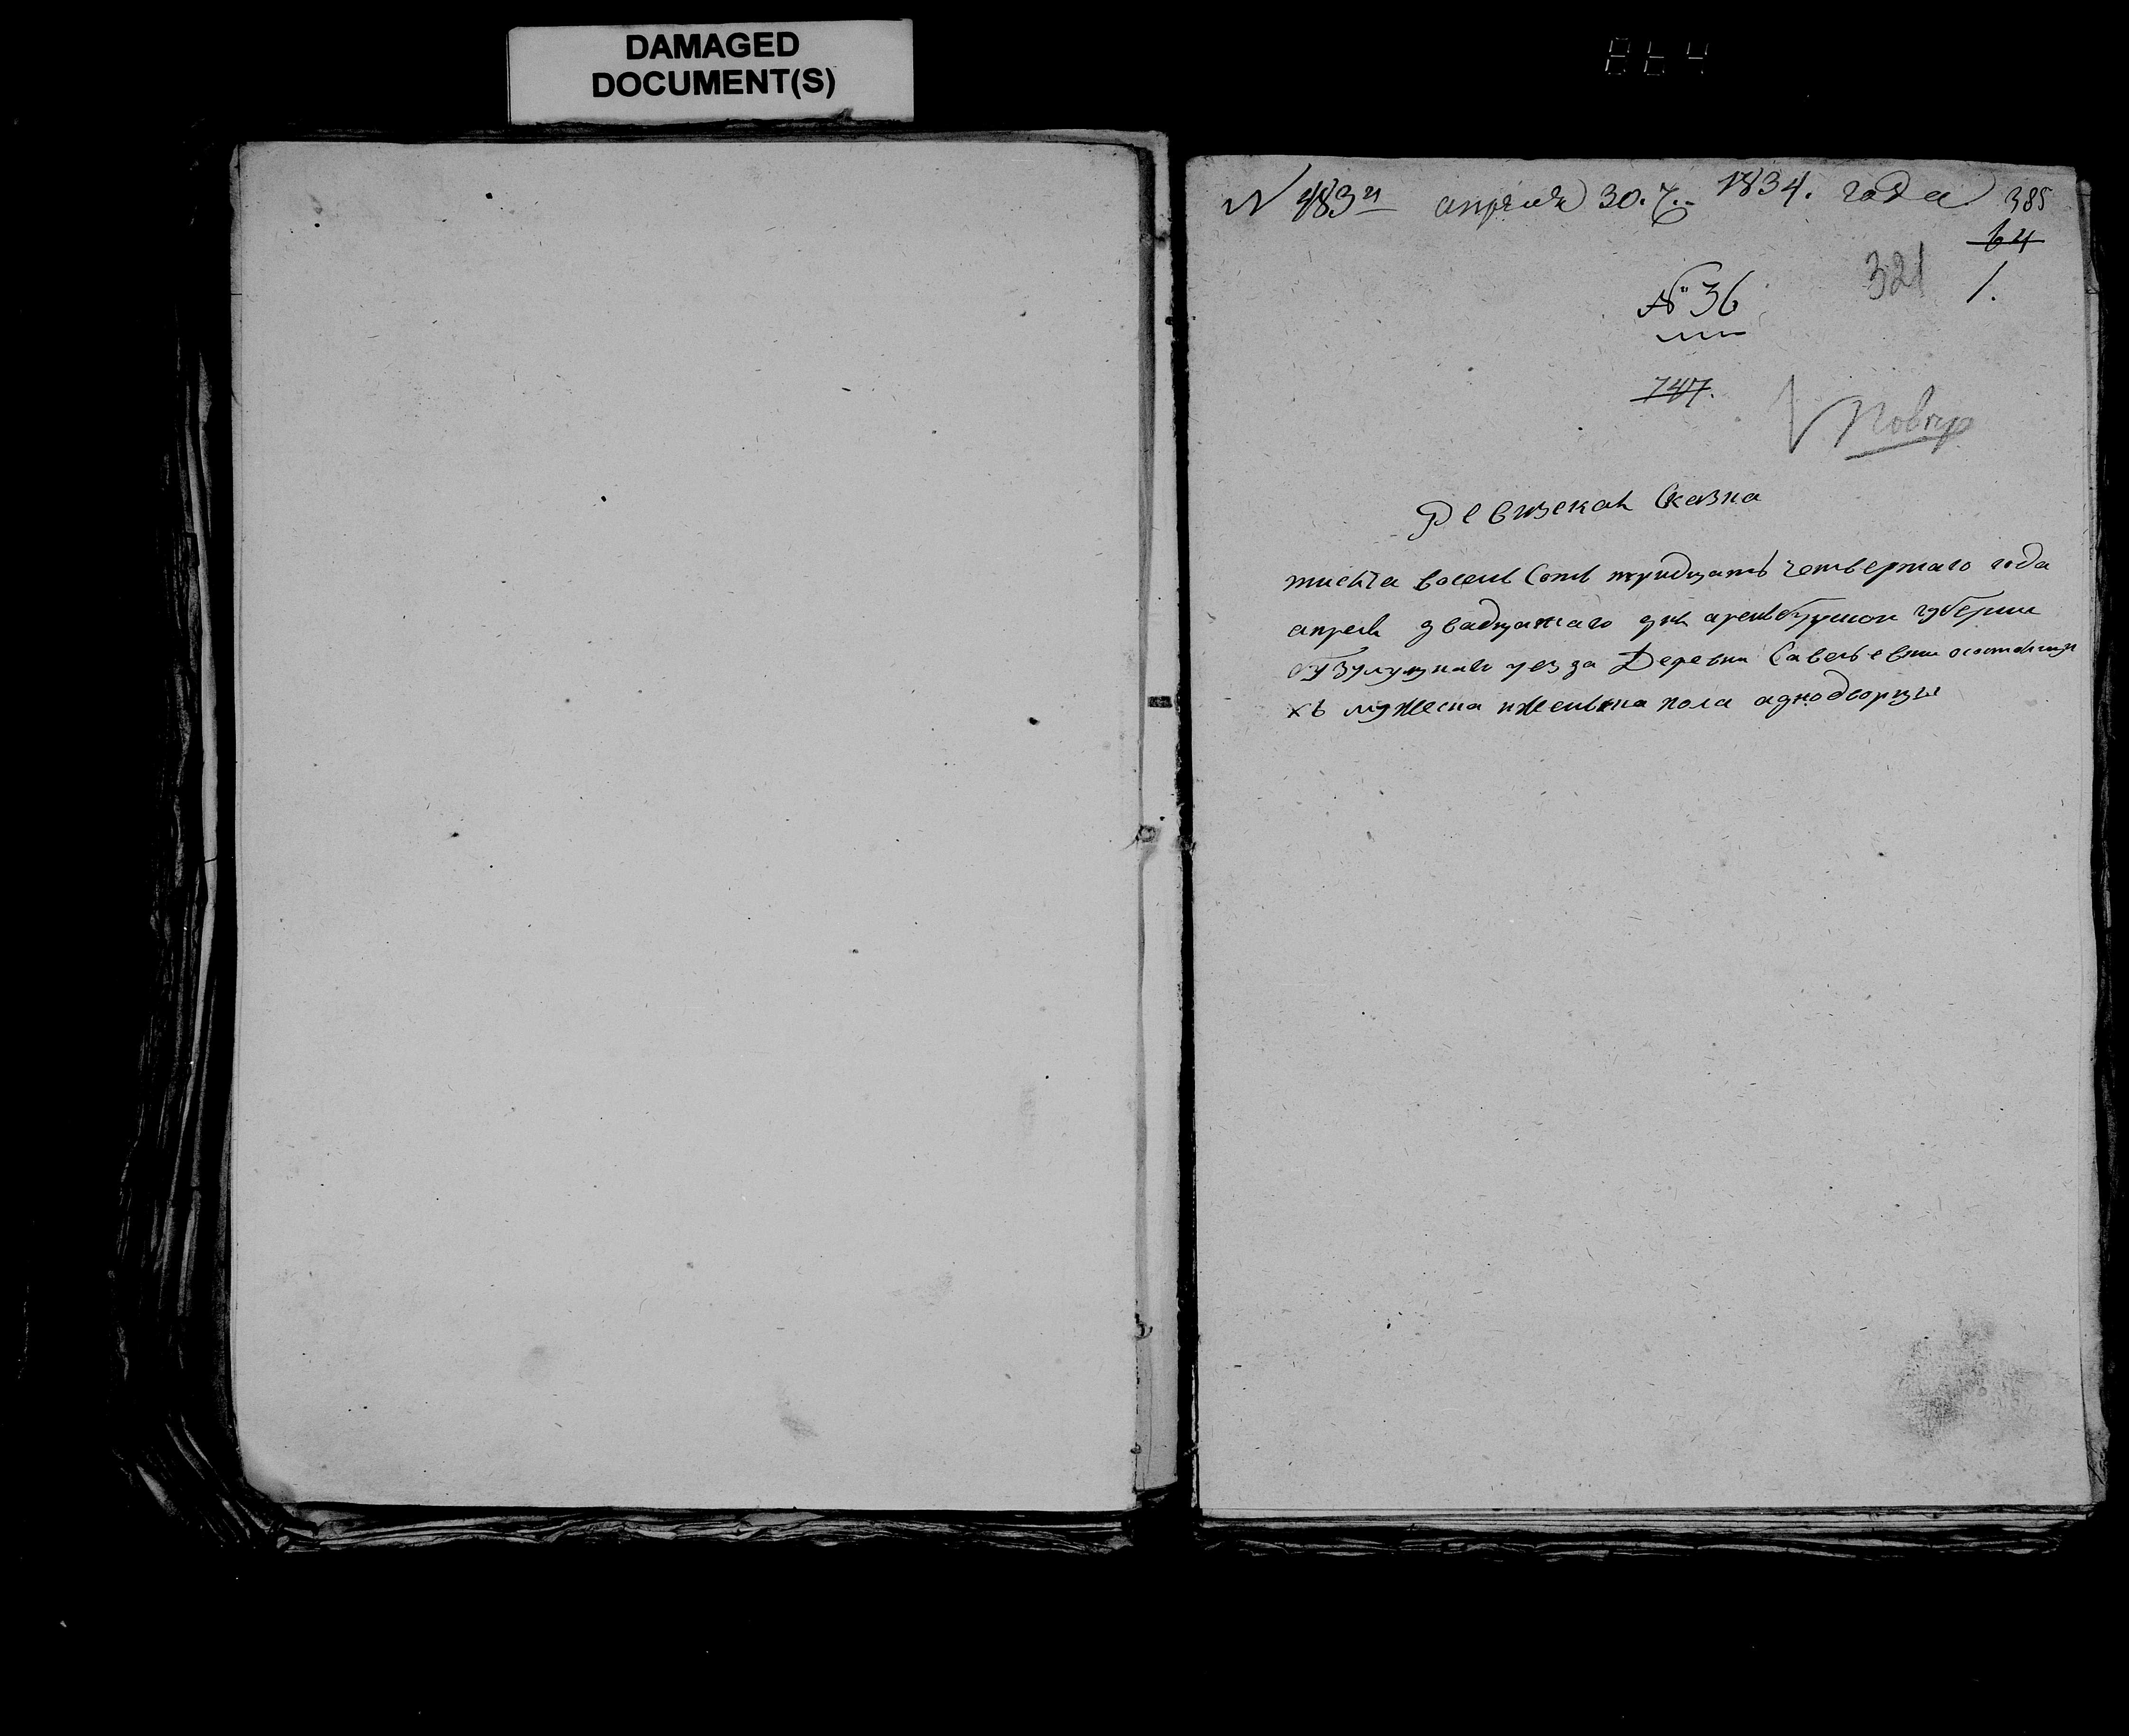 DAMAGED
DOCUMENT(S)
N 483й апреля 30. 1834. года 385
64
321 1.
№ 36
747.
Повер
Ревизская Сказка
тысеча восемь Сотъ тридцать четвертаго года
апреля двадцатаго дня аренбурской губерни
бузулуцкаго уезда Деревни Савельевки осостоящи
хъ мужеска иженьска пола аднодворцы